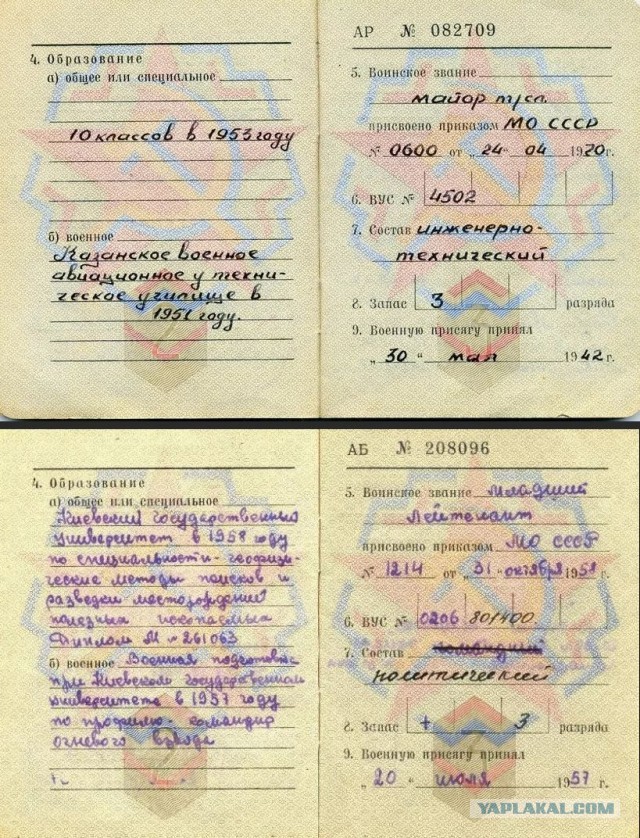 4. Образование
а) общее или специальное
10 классов в 1953 году
б) военное
Казанское военное
авиационное у техни-
ческое училище в
1951 году.
АР № 082709
5. Воинское звание
майор
присвоено приказом МО СССР
№ 0600 от „24“ 04 1970 г.
6. ВУС № 4502
7. Состав инженерно-
технический
8. Запас 3 разряда
9. Военную присягу принял
„30“ мая 1942 г.
4. Образование
а) общее или специальное
Киевский государственный
университет в 1958 году
по специальности - геофизи-
ческие методы поисков и
разведки месторождений
полезных ископаемых
Диплом М № 261063
б) военное Военная подготовка
при Киевском государственном
университете в 1957 году
по профилю - командир
огневого взвода
АБ № 208096
5. Воинское звание младший
лейтенант
присвоено приказом МО СССР
№ 1214 от „31“ октября 1958 г.
6. ВУС № 0206 801400.
7. Состав командный
политический
8. Запас + 3 разряда
9. Военную присягу принял
„20“ июля 1957 г.
YAPLAKAL.COM